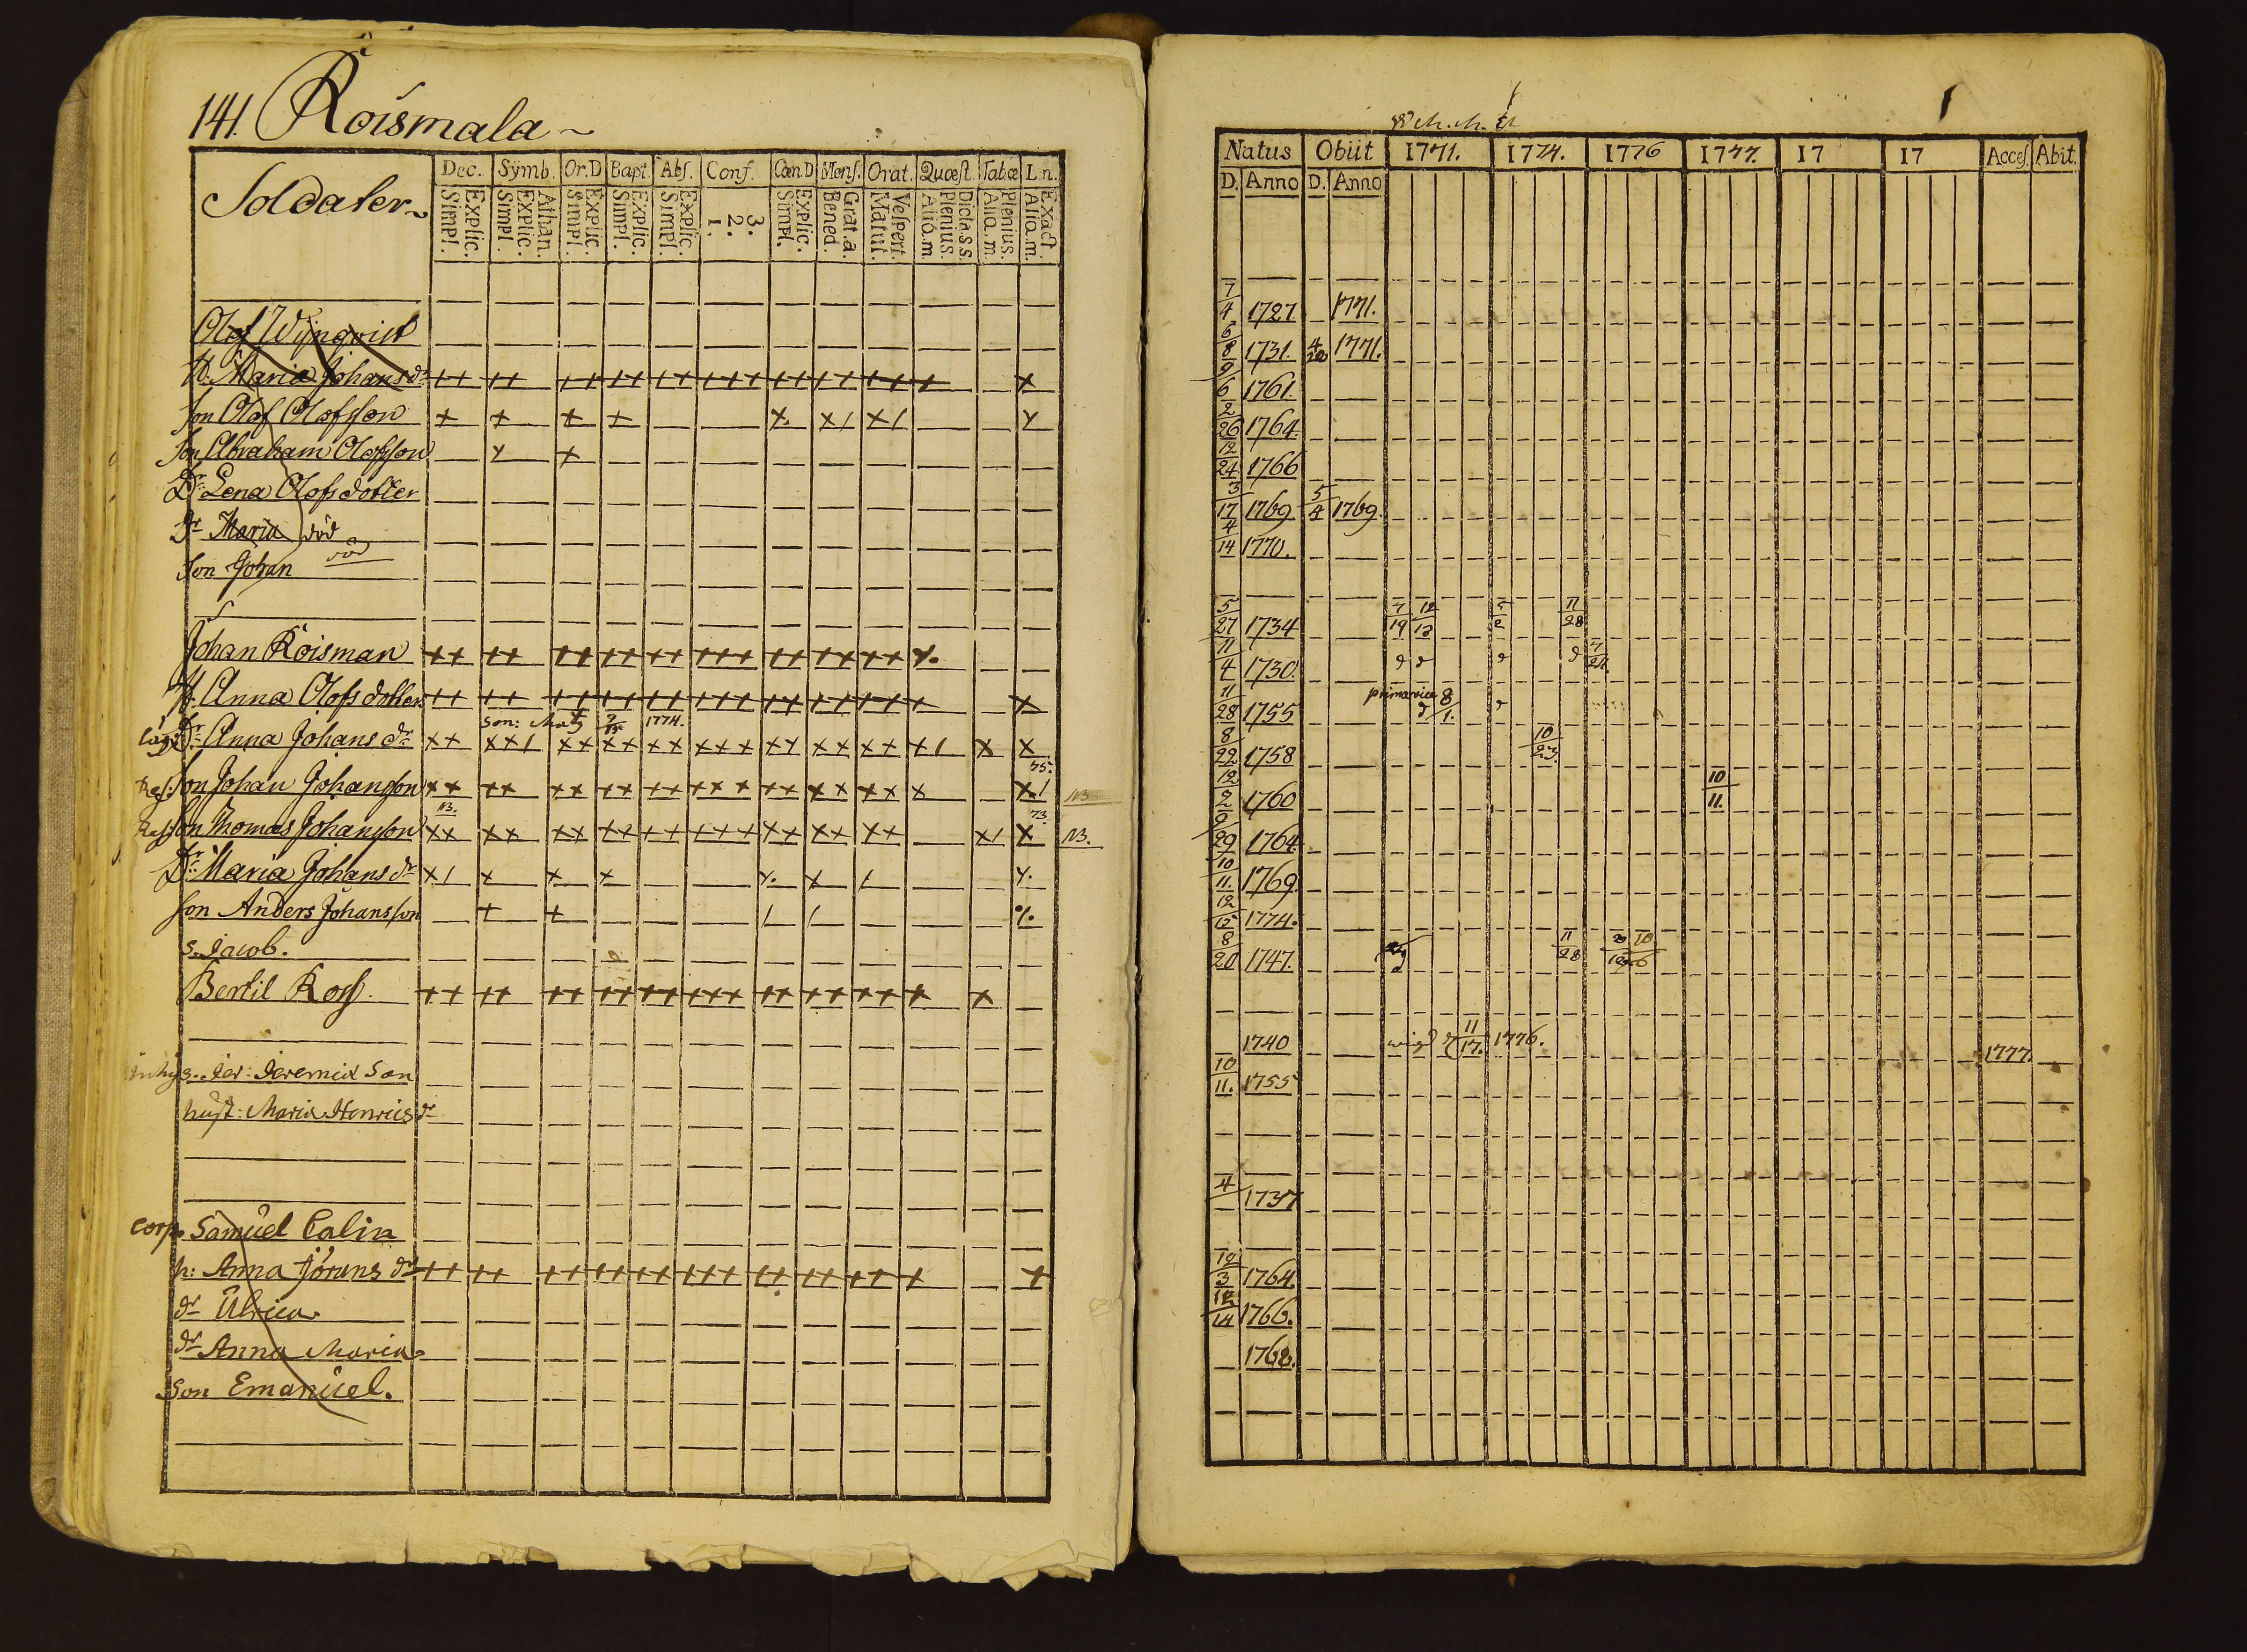 141. Roismala
Soldater
Dec. Symb. Or.D Bapt. Abs. Conf. Cœn D Mens. Orat. Quæst. Tabæ L.n.
Explic. Simpl.
Athan. Explic. Simpl.
Explic. Simpl.
Explic. Simpl.
Explic. Simpl.
3. 2. 1.
Explic. Simpl.
Grat.a. Bened.
Vespert. Matut.
Dicta s.s. Plenius. Aliq.m.
Plenius. Aliq.m.
Exact. Aliq.m.
Olof Wijnqvist
H. Maria Johans dr
Son Olof Olofsson
Son Abraham Olofsson
Dr Lena Olofsdotter
Dr Maria död
Son Johan död
Johan Roisman
H. Anna Olofsdotter
Son: 1774.
Dr Anna Johans dr
75.
Son Johan Johansson NB
NB. 73.
Son Thomas Johansson NB.
Dr Maria Johans dr
Son Anders Johansson
s. Jacob.
Bertil Ross.
inhys. Jer: Jeremiæ Son
hust: Maria Henrics dr
corp. Samuel Calin
h: Anna Jörans dr
dr Ulrica
dr Anna Maria
Son Emanuel.
Natus Obiit 1771. 1774. 1776 1777. 17 17 Acces. Abit.
D. Anno D. Anno
7/4 1727 1771.
6/8 1731. 4/20 1771.
9/6 1761.
2/26 1764.
12/24 1766
3/17 1769 5/4 1769.
4/14 1770.
5/27 1734 7/19 12/12 5/2 11/28
11/4 1730. d d d d 7/21
11/28 1755 primavice d 8/1. d
8/22 1758 10/23.
12/2 1760 10/11.
9/29 1764
10/11. 1769.
12/15 1774.
8/20 1747. 11/28
1740 wigd d 11/17. 1776. 1777.
10/11. 1755
4 1737
12/3 1764.
12/14 1766.
1768.